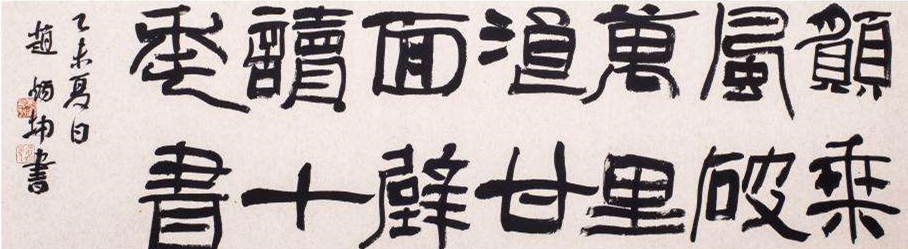 願乘
風破
萬里
浪甘
面壁
讀十
年書
乙未夏日
趙炳坤書